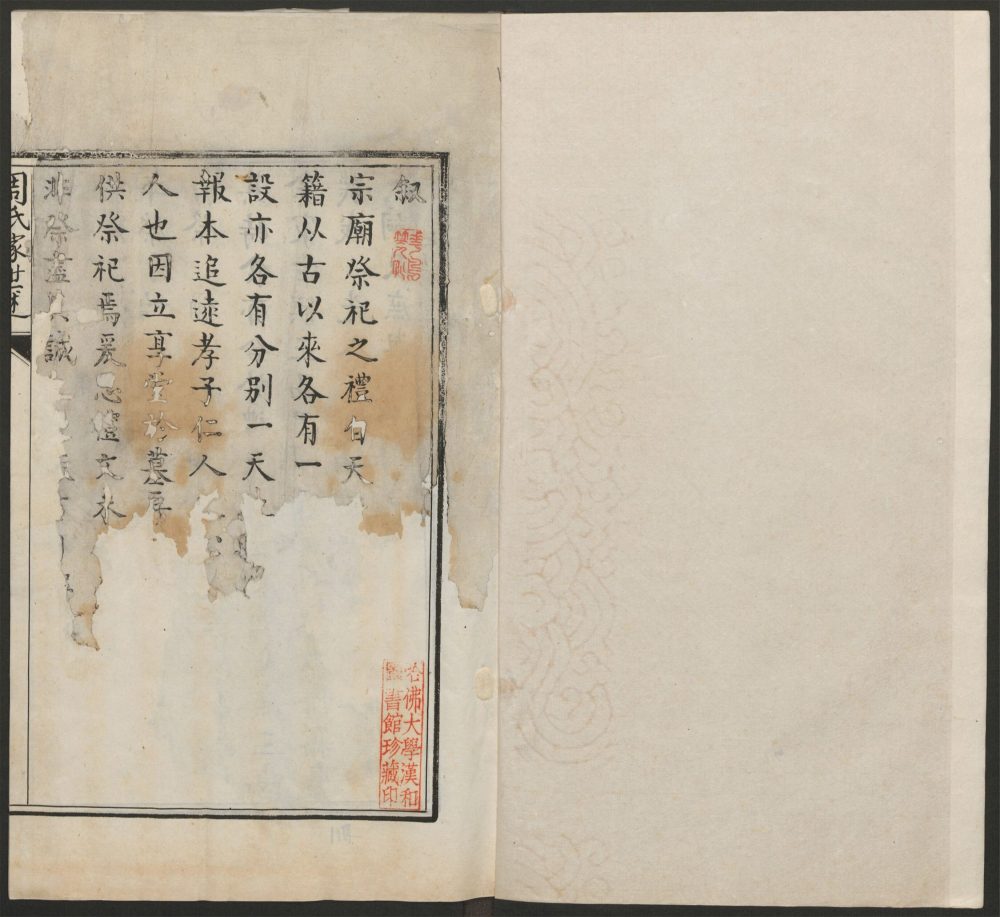 叙
宗廟祭祀之禮自天
籍以古以來各有一
設亦各有分别一天
報本追遠孝子仁人
人也因立享堂於墓
供祭祀焉爰心禮文
非祭盡其誠
周氏家世
哈佛大學漢和
圖書館珍藏印